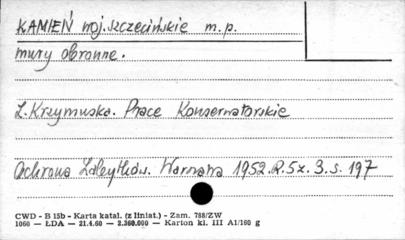 KAMIEŃ woj. szczecińskie m.p.
mury obronne.
L. Krzymuska. Prace Konserwatorskie
Ochrona Zabytków. Warszawa 1952. R. 5 z. 3. s. 197
CWD - B 15b - Karta katal. (z liniat.) - Zam. 788/ZW
1060 — ŁDA — 21.4.60 — 2.360.000 — Karton kl. III A1/160 g